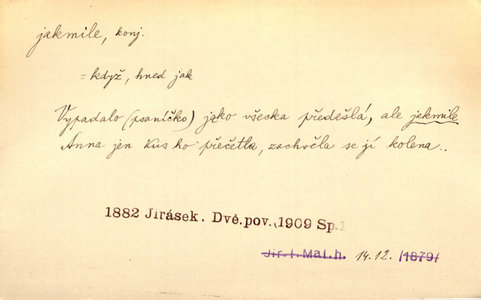 jakmile, konj.
= když, hned jak
Vypadalo (psaníčko) jako všecka předešlá, ale jakmile
Anna jen kus ho přečetla, zachvěla se jí kolena..
1882 Jirásek. Dvě.pov.(1909 Sp.1
Jir. f. Mal.h. 14.12. /1879/